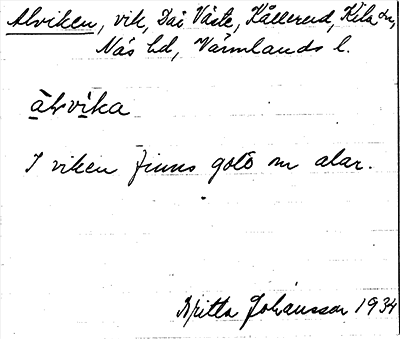 Alviken, vik, Kållerud, Kila sn,
Näs hd, Värmlands l.
àlvìka
I viken finns gott om alar.
Britta Johansson 1934